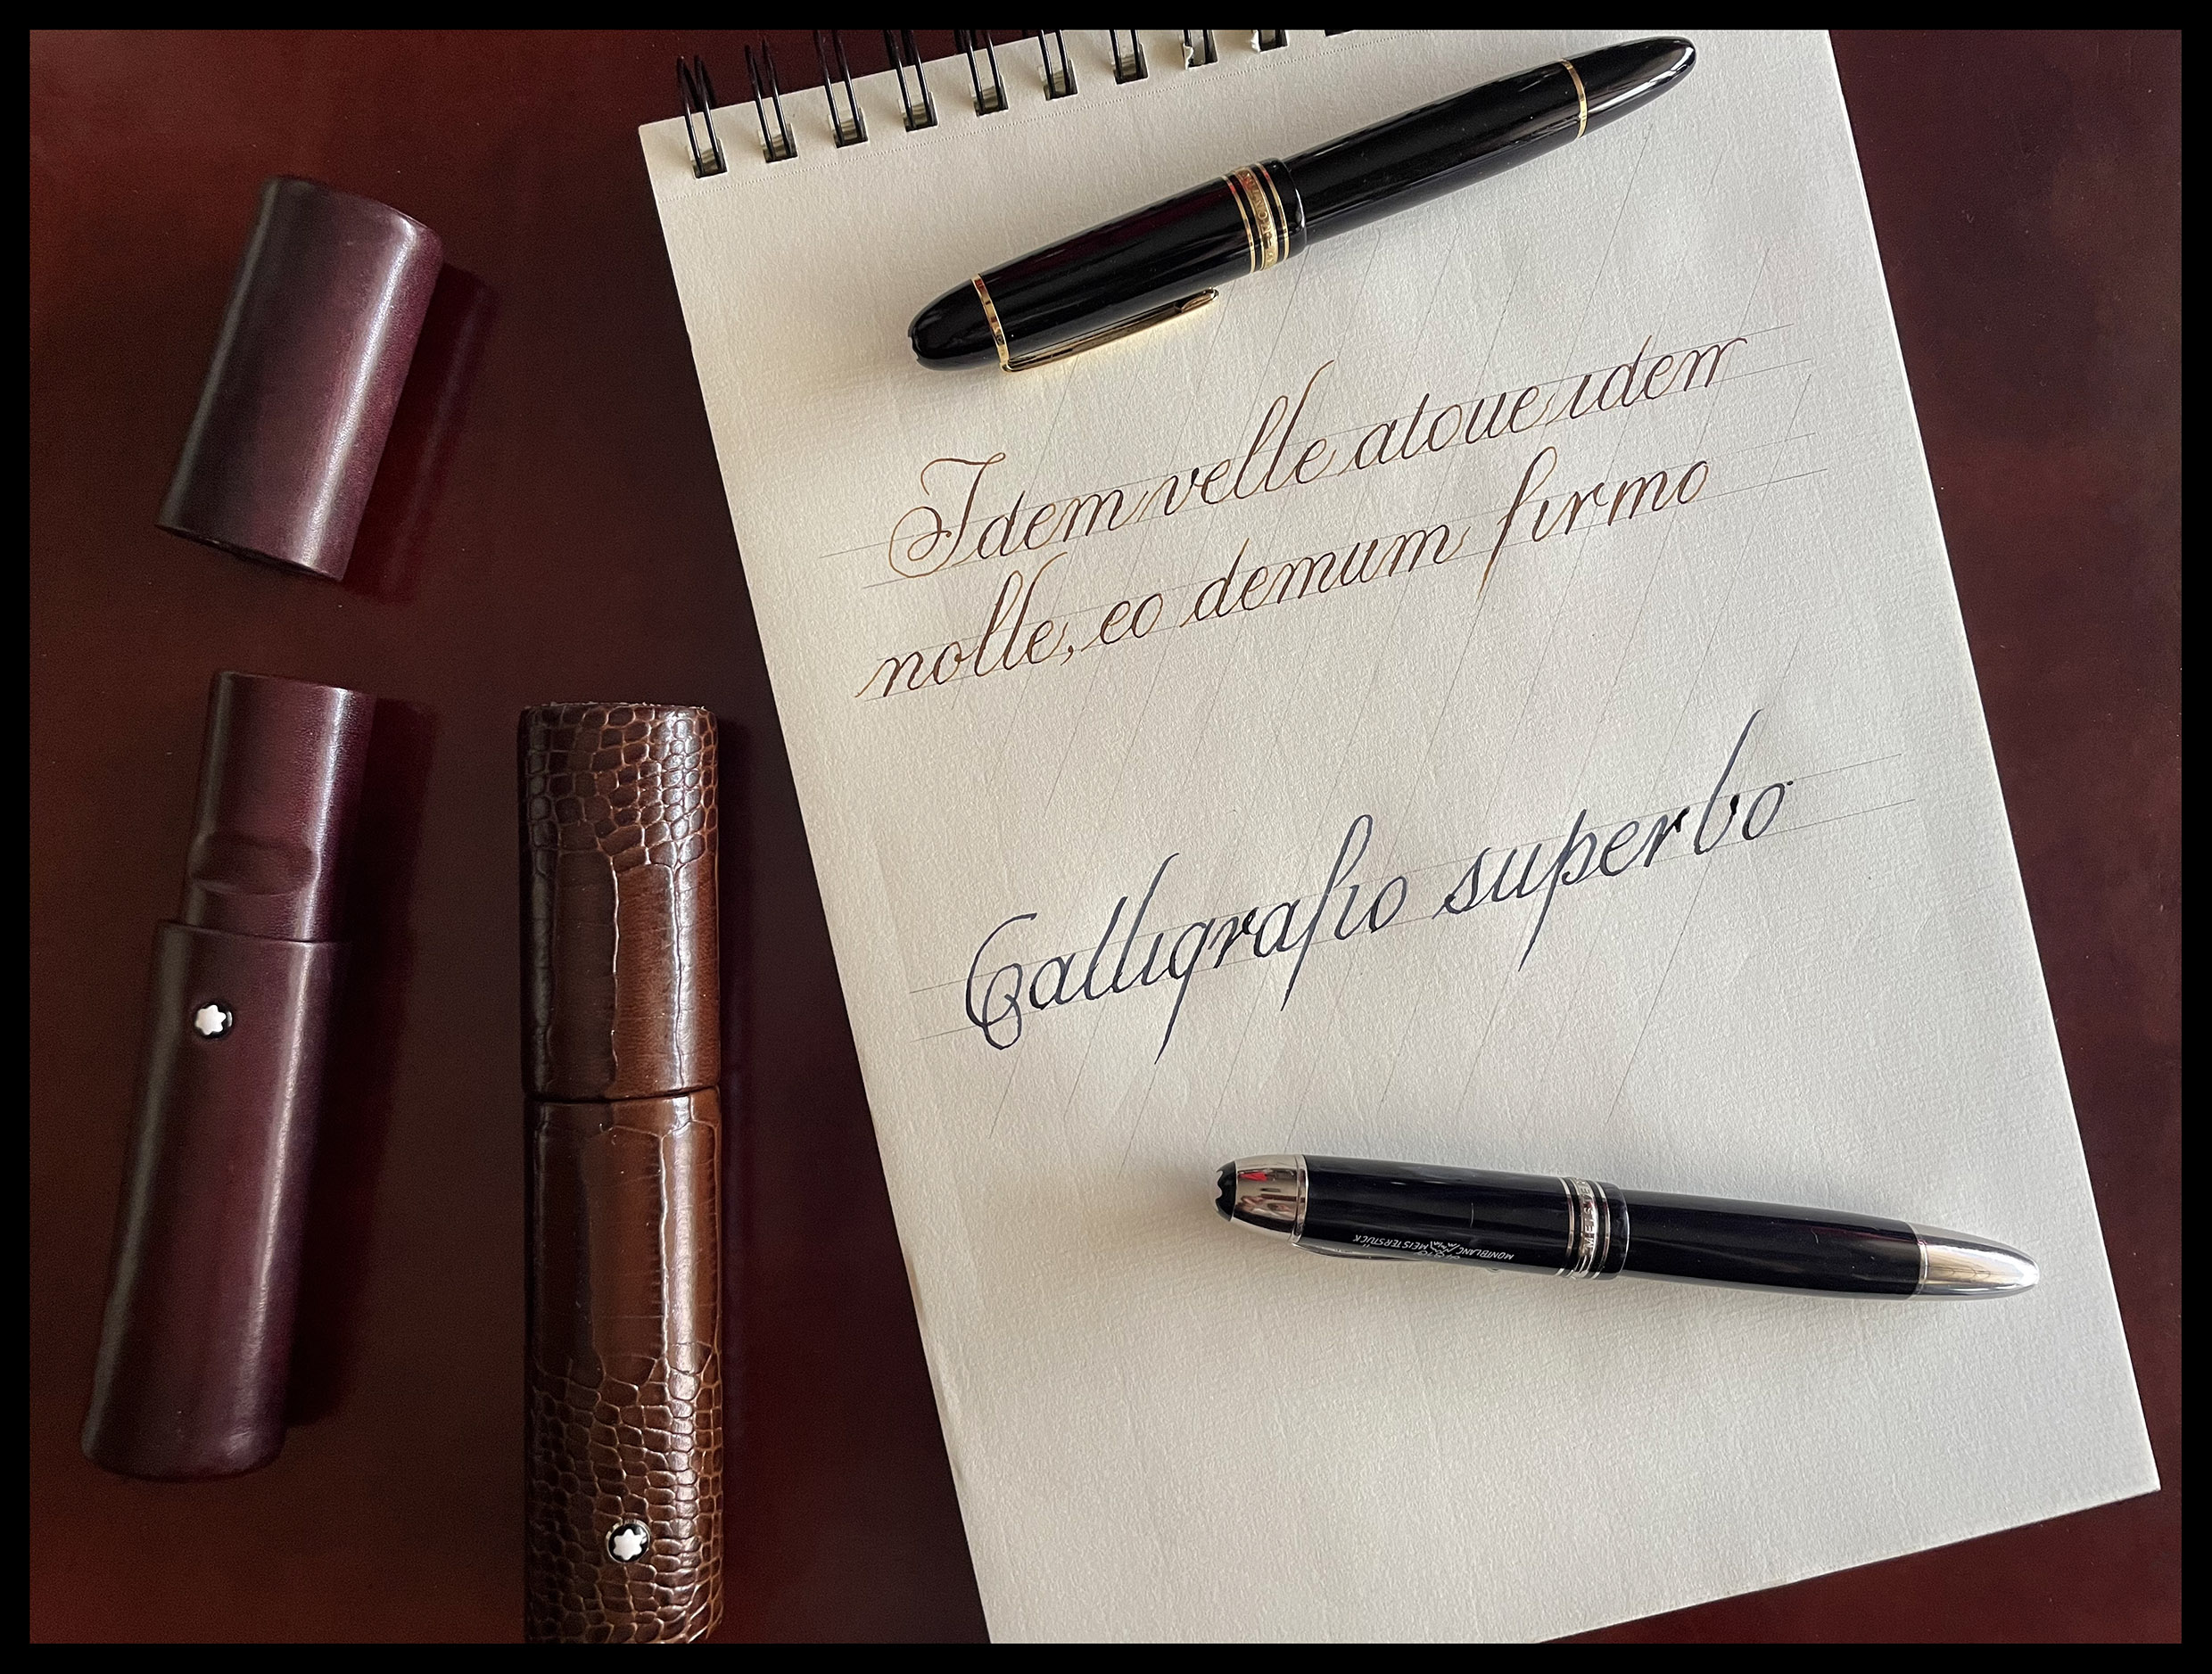 Idem velle atque idem
nolle, eo demum firmo
Calligrafio superbo
MONTBLANC MEISTERSTÜCK